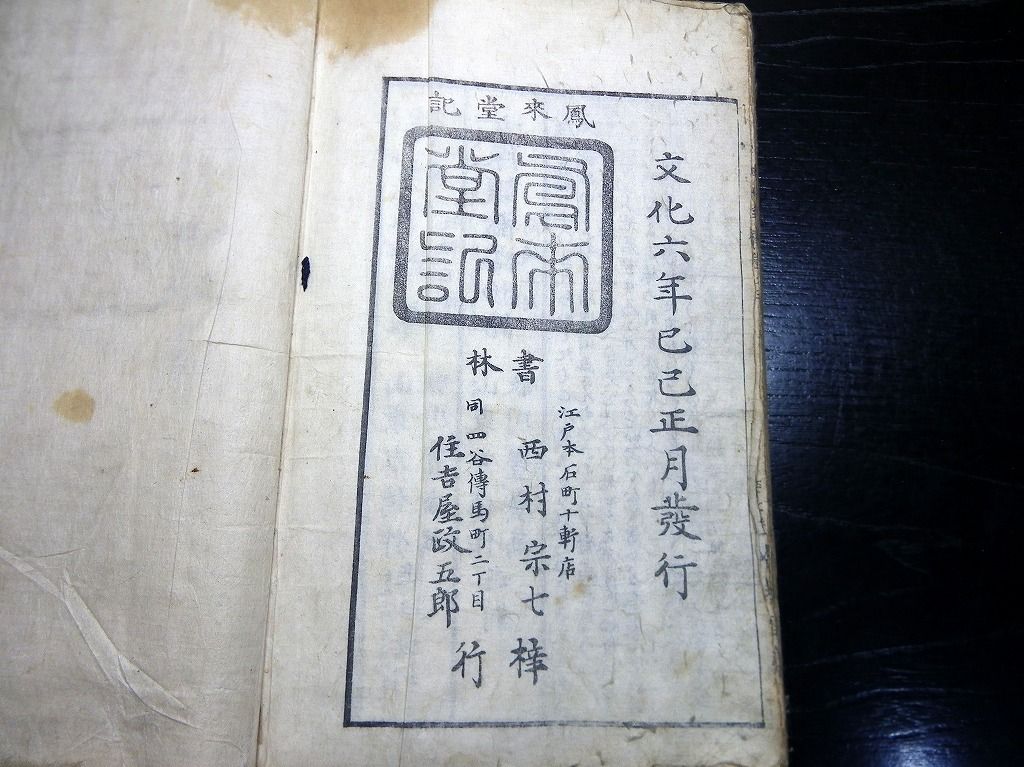 文化六年己巳正月發行
鳳來堂記
鳳來堂記
書林
江戸本石町十軒店
西村宗七
同四谷傳馬町二丁目
住吉屋政五郎
梓行